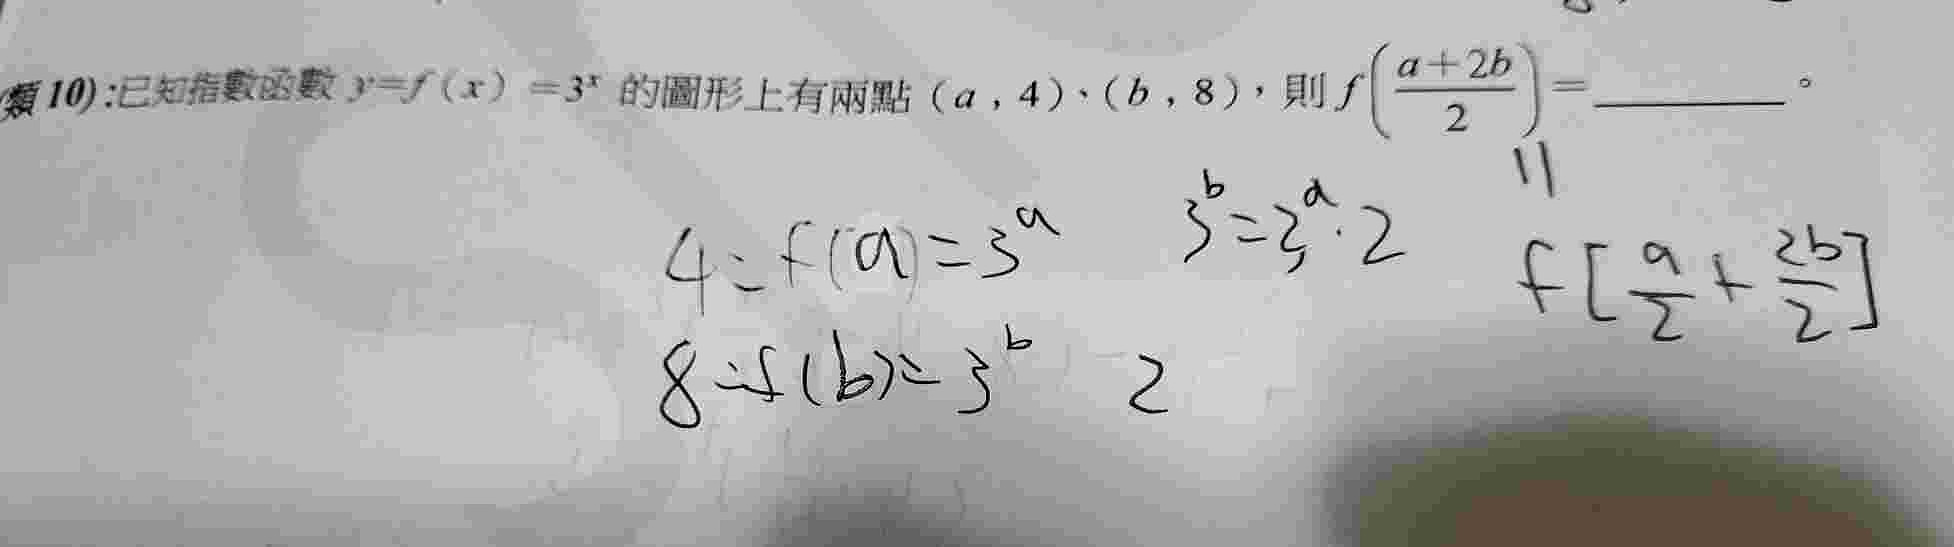 (類10):已知指數函數 y=f(x)=3ˣ 的圖形上有兩點(a,4)、(b,8),則 f((a+2b)/2)=________。
4=f(a)=3^a
3^b=3^a·2
=
f[a/2+2b/2]
8=f(b)=3^b 2